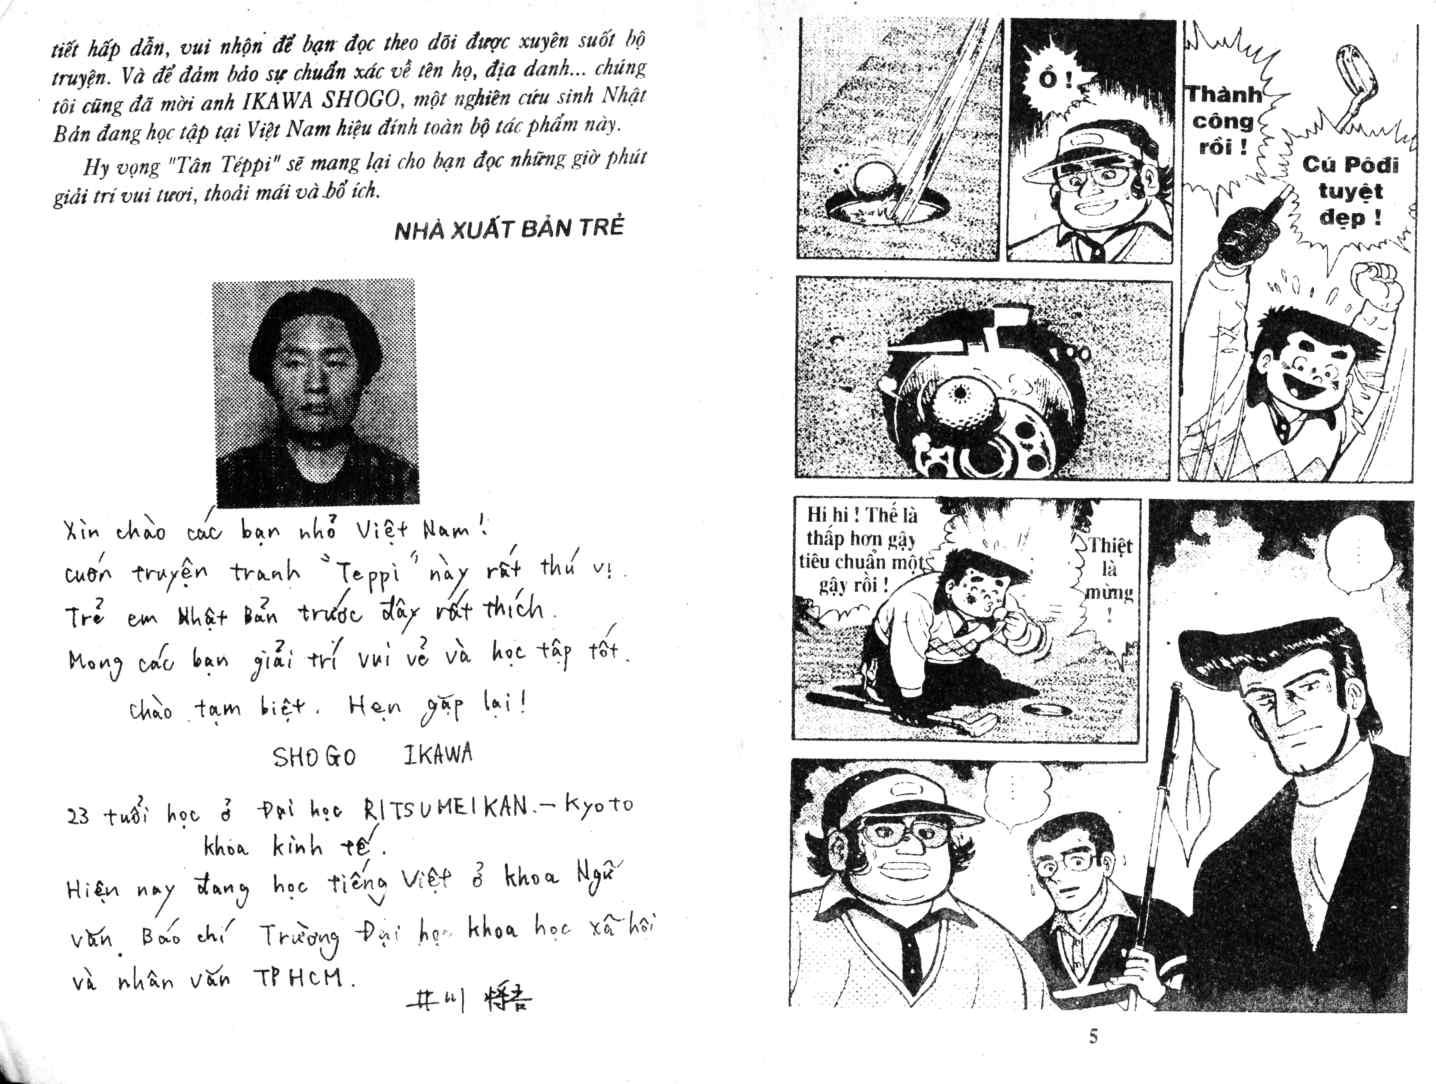 tiết hấp dẫn, vui nhộn để bạn đọc theo dõi được xuyên suốt bộ
truyện. Và để đảm bảo sự chuẩn xác về tên họ, địa danh... chúng
tôi cũng đã mời anh IKAWA SHOGO, một nghiên cứu sinh Nhật
Bản đang học tập tại Việt Nam hiệu đính toàn bộ tác phẩm này.
Hy vọng "Tân Téppi" sẽ mang lại cho bạn đọc những giờ phút
giải trí vui tươi, thoải mái và bổ ích.
NHÀ XUẤT BẢN TRẺ
Xin chào các bạn nhỏ Việt Nam!
cuốn truyện tranh "Teppi" này rất thú vị.
Trẻ em Nhật Bản trước đây rất thích.
Mong các bạn giải trí vui vẻ và học tập tốt.
chào tạm biệt. Hẹn gặp lại!
SHOGO IKAWA
23 tuổi học ở Đại học RITSUMEIKAN - Kyoto
khoa kinh tế.
Hiện nay đang học tiếng Việt ở khoa Ngữ
văn Báo chí Trường Đại học khoa học xã hội
và nhân văn TPHCM.
井川 将吾
Ồ !
Thành
công
rồi !
Cú Pôđi
tuyệt
đẹp !
Hi hi ! Thế là
thấp hơn gậy
tiêu chuẩn một
gậy rồi !
Thiệt
là
mừng
!
......
......
5